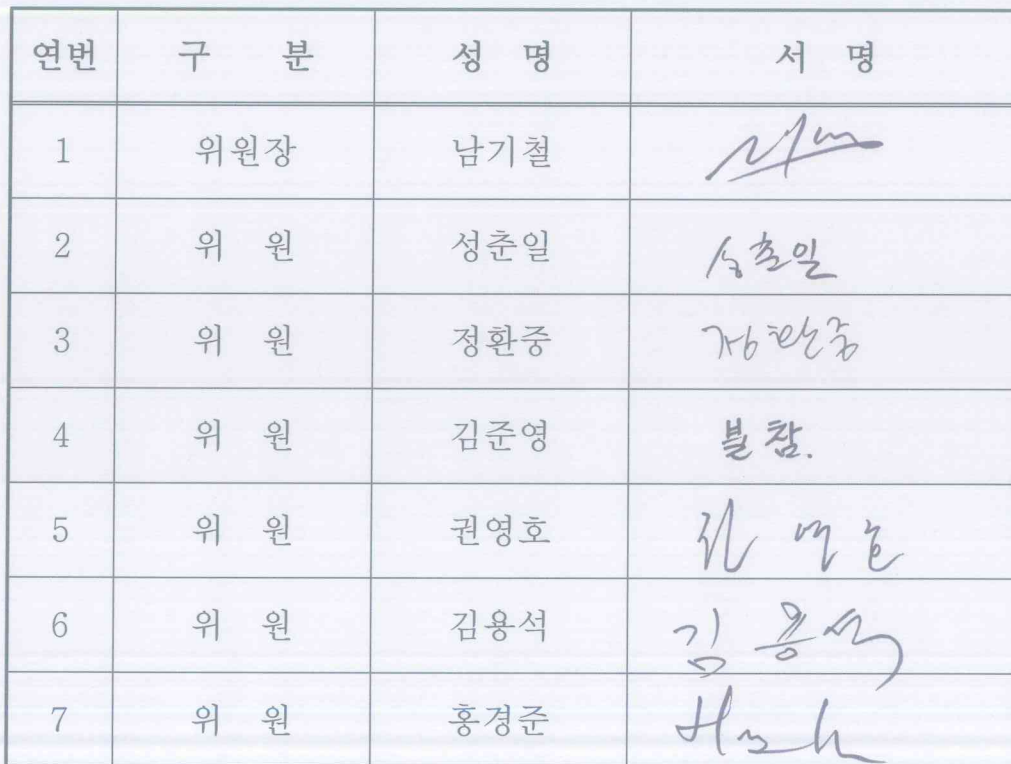 연번 구 분 성 명 서 명
1 위원장 남기철
2 위 원 성춘일 성춘일
3 위 원 정환중 정환중
4 위 원 김준영 불참.
5 위 원 권영호 권영호
6 위 원 김용석 김용석
7 위 원 홍경준